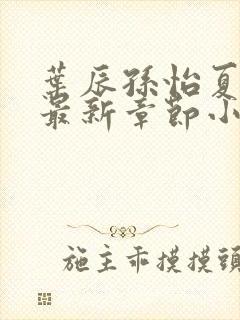 葉辰孫怡夏
最新章節小
施主乖摸摸頭